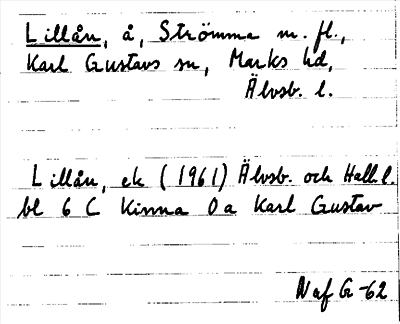 Lillån, å, Strömma m. fl.,
Karl Gustavs sn, Marks hd,
Älvsb. l.
Lillån, ek (1961) Älvsb. och Hall. l.
bl 6 C Kinna 0a Karl Gustav
NafG -62